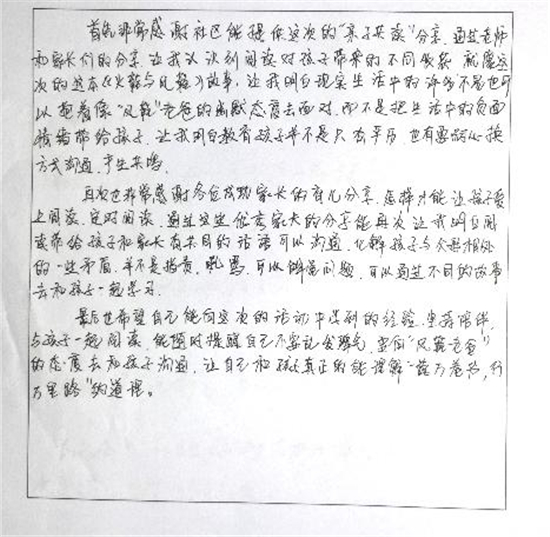 首先非常感谢社区能提供这次的“亲子共读”分享，通过老师
和家长们的分享，让我认识到阅读对孩子带来的不同成效，就像这
次的这本《火鞋与风鞋》故事，让我明白现实生活中的许多不足也可
以抱着像“风鞋”老爸的幽默态度去面对，而不是把生活中的负面
情绪带给孩子，让我明白教育孩子并不是只有平历，也有要耐心换
方式沟通，产生共鸣。
再次也非常感谢各位成功家长的育儿分享，怎样才能让孩子爱
上阅读，定时阅读，通过这些优秀家长的分享能再次让我明白阅
读带给孩子和家长有共同的话语可以沟通，化解孩子与父母相处
的一些矛盾，并不是指责，吼骂，可以解决问题，可以通过不同的故事
去和孩子一起学习。
最后也希望自己能向这次的活动中学到的经验，坚持陪伴，
与孩子一起阅读，能随时提醒自己不要乱发脾气，要向“风鞋老爸”
的态度去和孩子沟通，让自己和孩子真正的能理解“读万卷书，行
万里路”的道理。